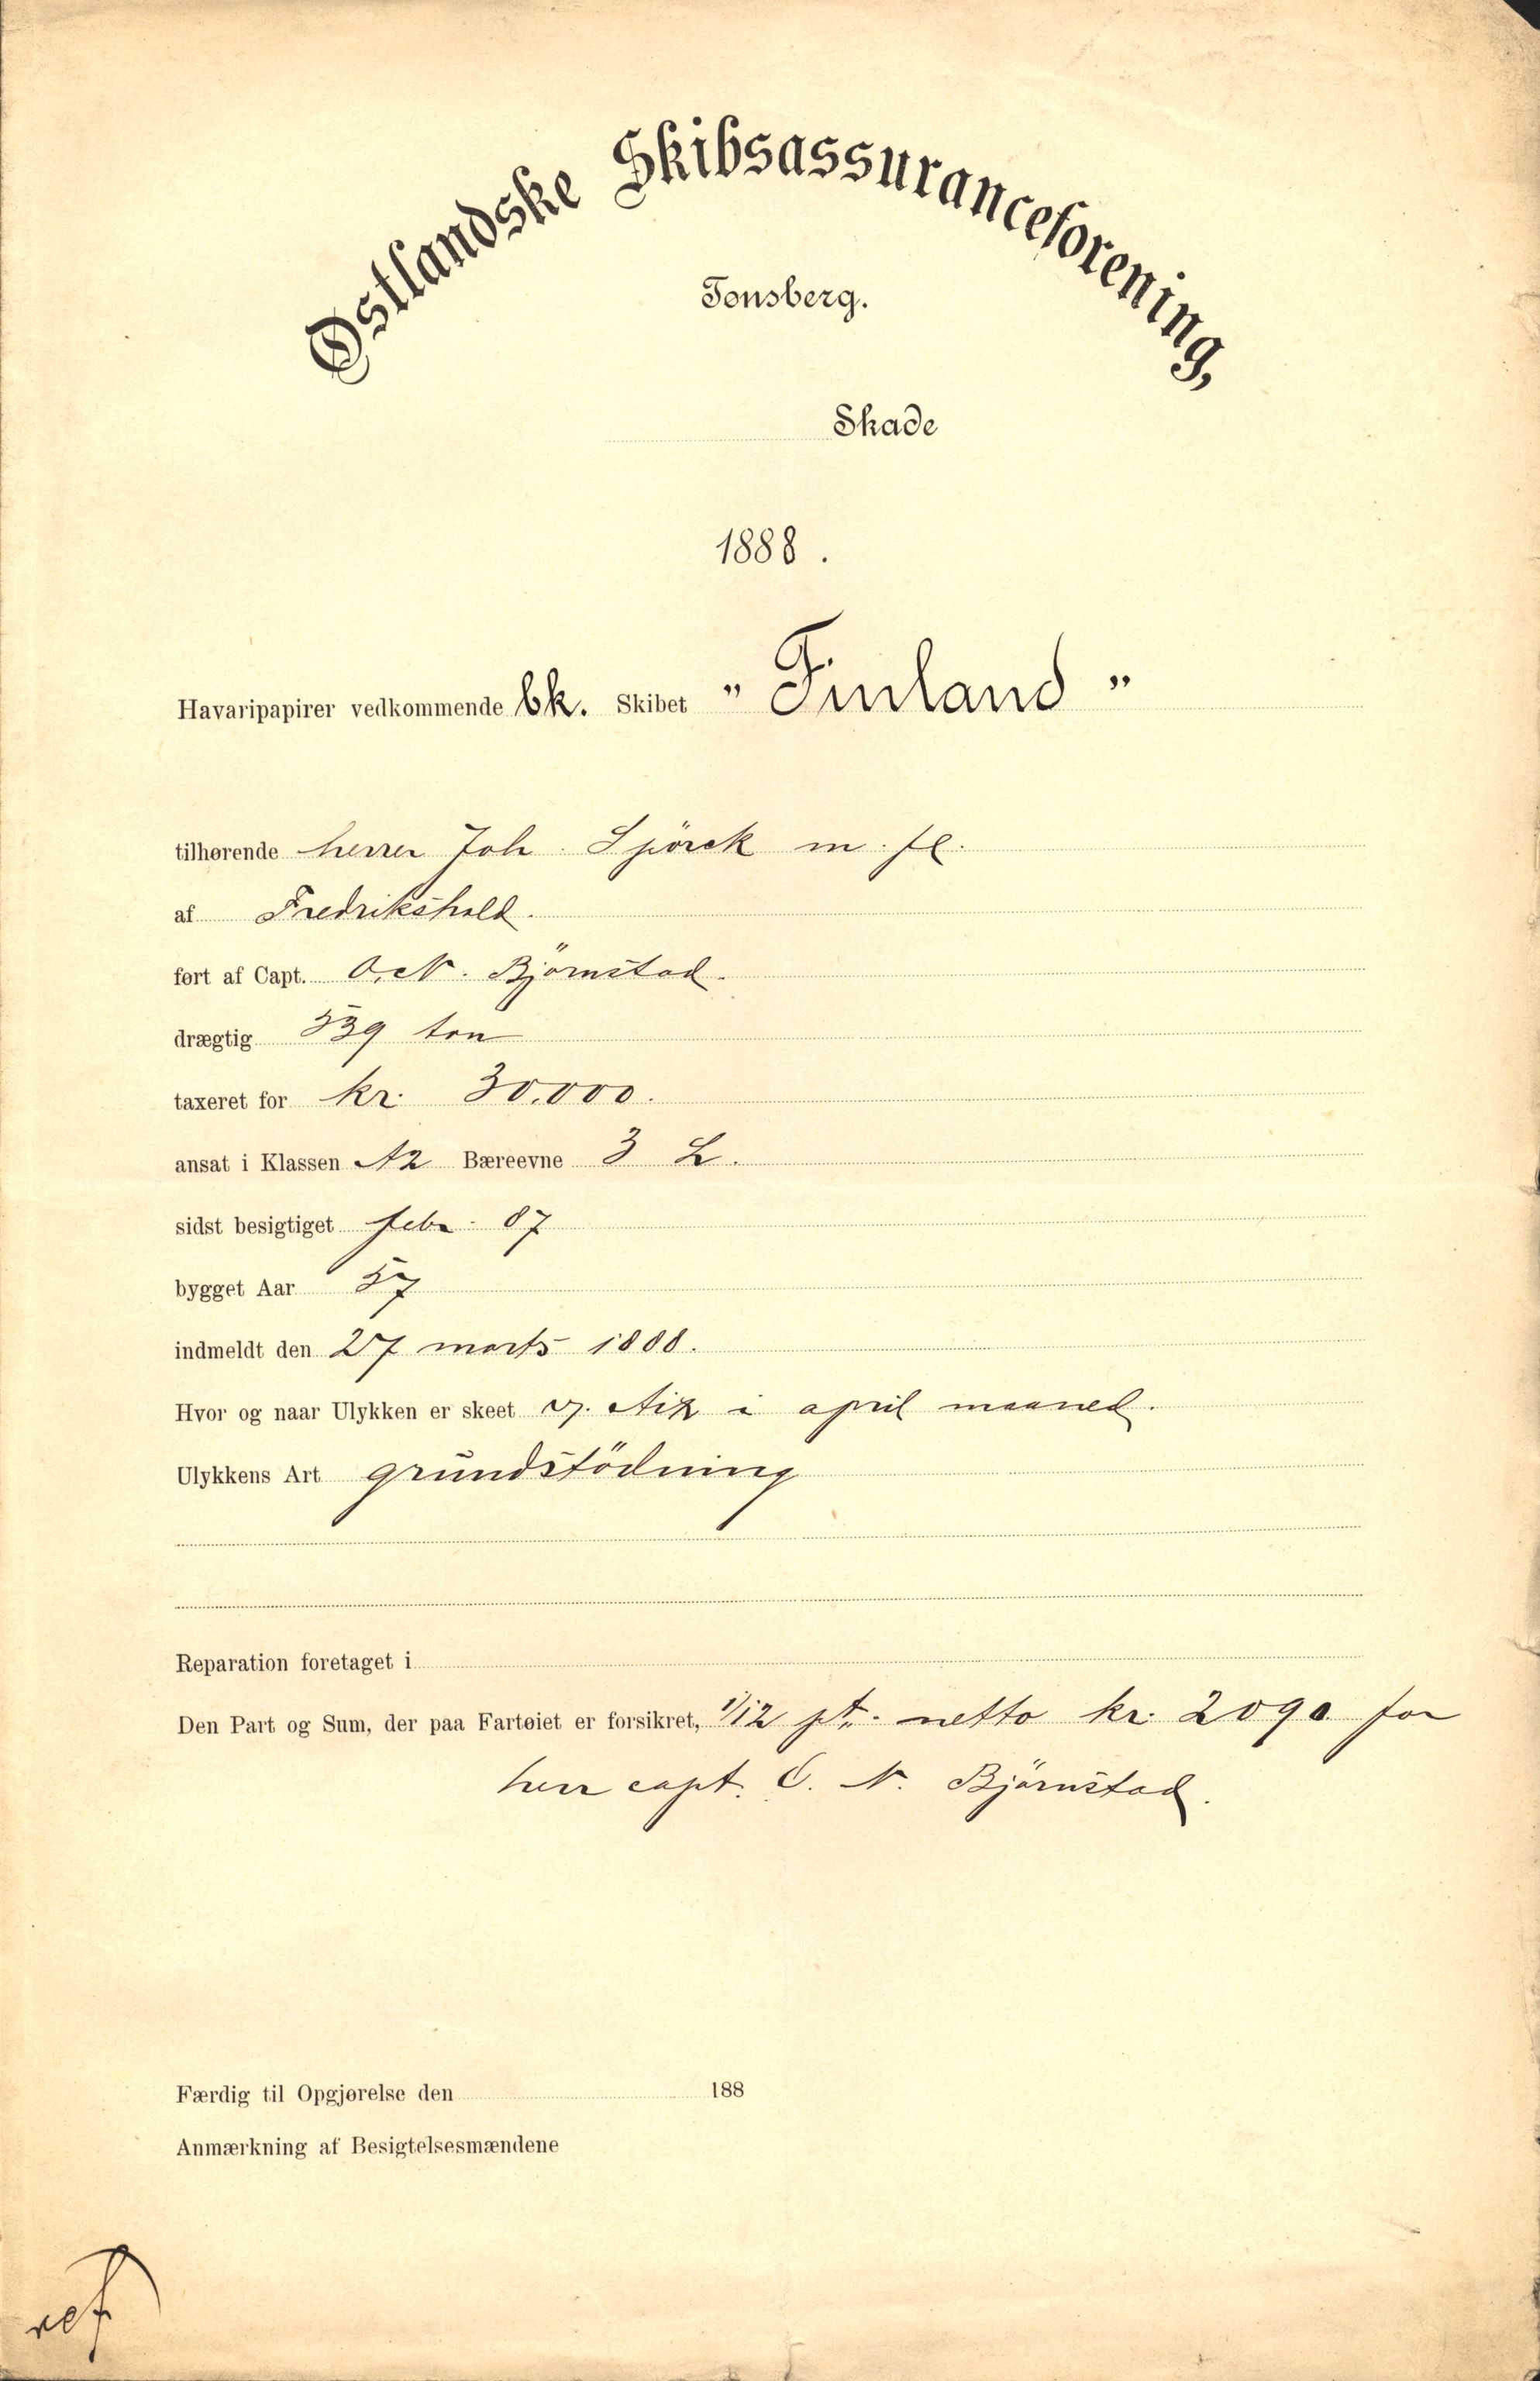 Østlandske Skibsassuranceforening,
Tonsberg.
Skade
1888.
Havaripapirer vedkommende bk. Skibet „Finland”
tilhørende herrer Joh. Spörck m. fl.
af Fredrikshald.
ført af Capt. O. N. Björnstad.
drægtig 539 ton
taxeret for kr. 30.000.
ansat i Klassen A2 Bæreevne 3 L.
sidst besigtiget febr. 87
bygget Aar 57
indmeldt den 27 marts 1888.
Hvor og naar Ulykken er skeet v. Aix i april maaned.
Ulykkens Art grundstödning
Reparation foretaget i
Den Part og Sum, der paa Fartøiet er forsikret, 1/12 pt. netto kr. 2090 for
herr capt. O. N. Björnstad.
Færdig til Opgjørelse den 188
Anmærkning af Besigtelsesmændene